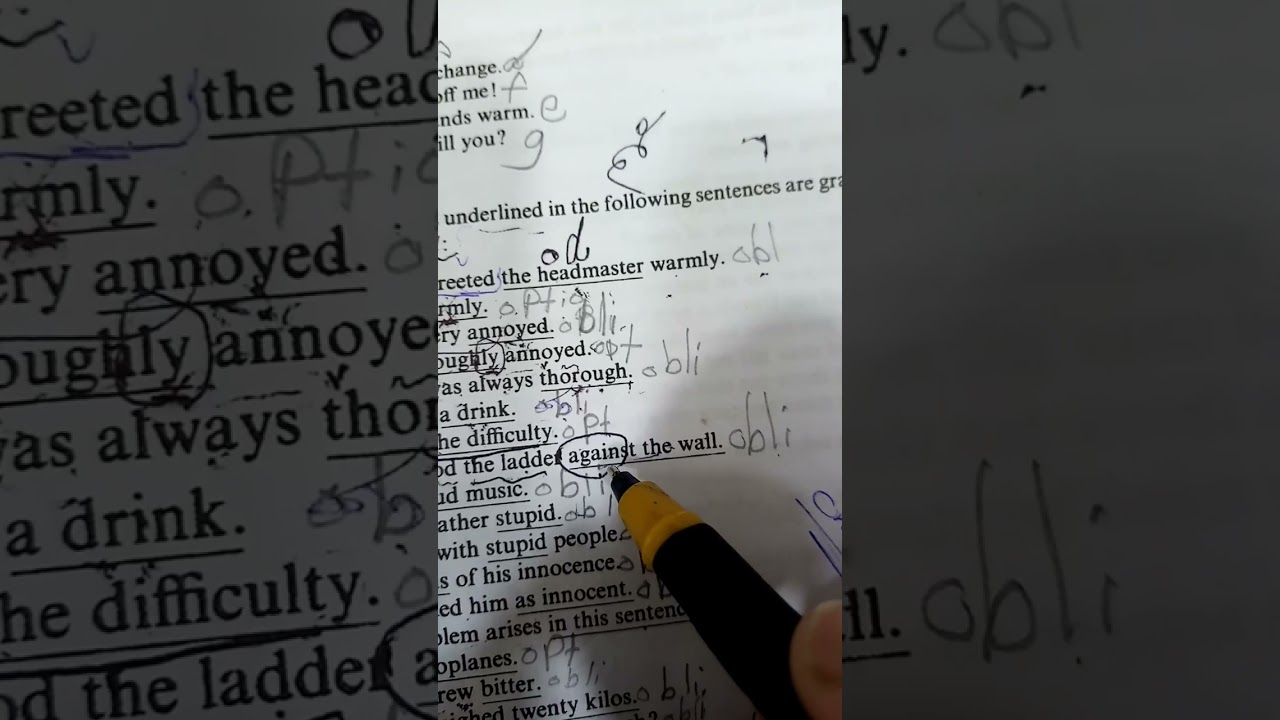 change.
off me! f
nds warm. e
ill you? g
underlined in the following sentences are gra
od
reeted the headmaster warmly. obl
rmly. optio
ery annoyed. obli
oughly annoyed. opt
as always thorough. obli
a drink. obli
he difficulty. opt
od the ladder against the wall. obli
ud music. obli
ather stupid. obl
with stupid people
s of his innocence.
ed him as innocent.
blem arises in this sentenc
oplanes. opt
rew bitter. obli
ighed twenty kilos. obli